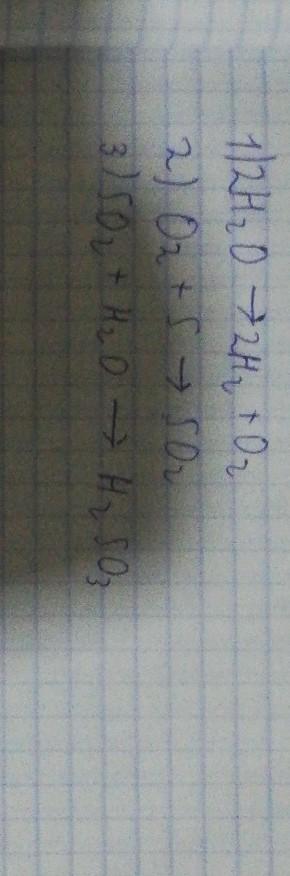 1) 2H₂O → 2H₂ + O₂
2) O₂ + S → SO₂
3) SO₂ + H₂O → H₂SO₃